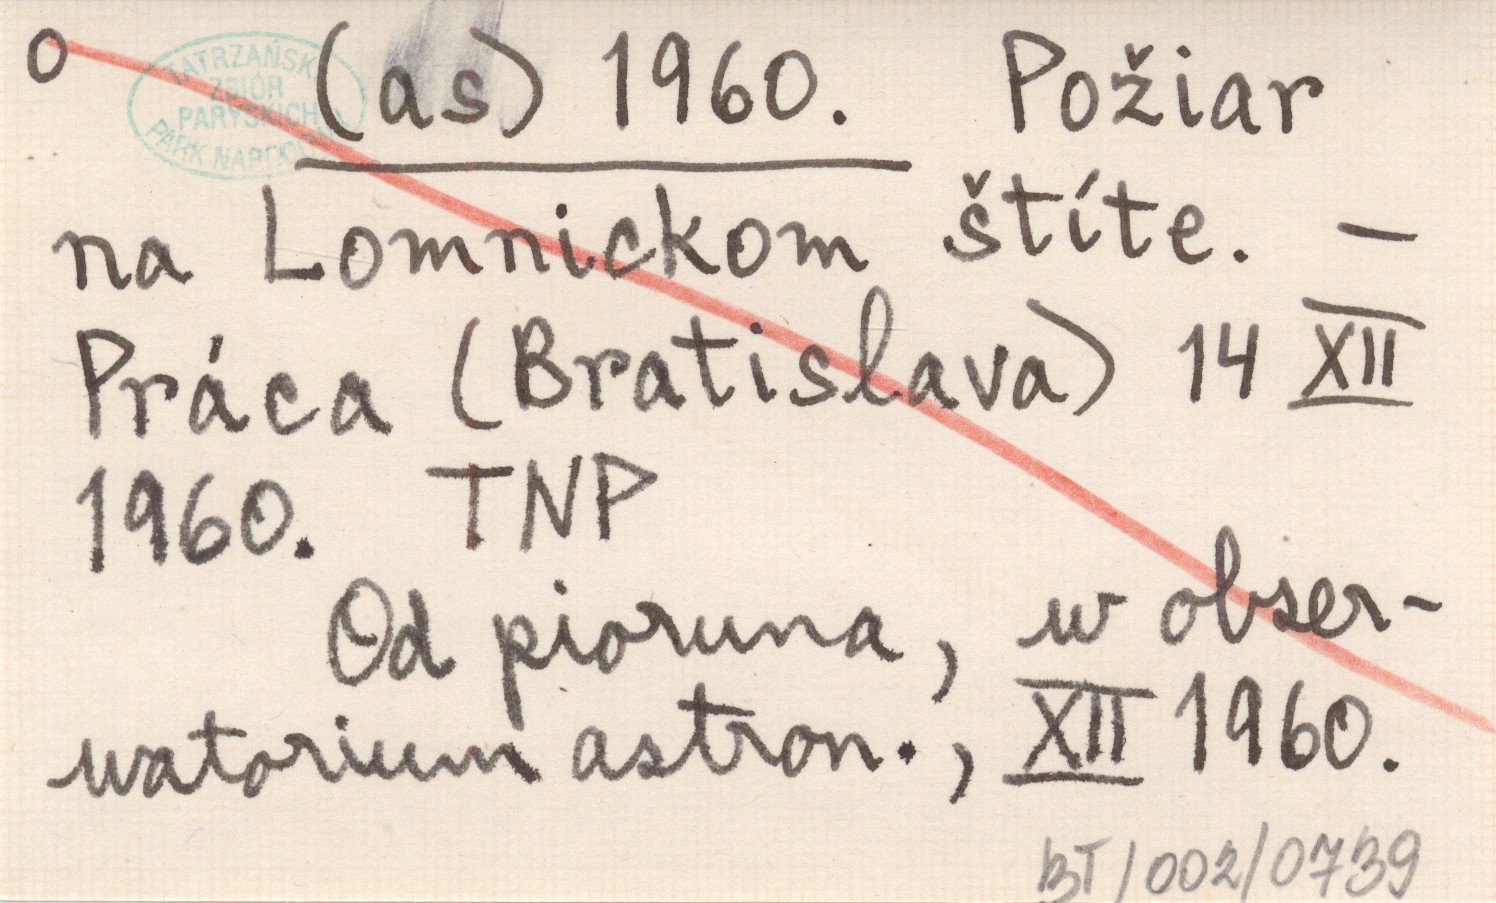 O
TATRZAŃSKI
ZBIÓR
PARYSKICH
PARK NARODOWY
(as) 1960. Požiar
na Lomnickom štíte. —
Práca (Bratislava) 14 XII
1960. TNP
Od pioruna, w obser-
watorium astron., XII 1960.
BT/002/0739